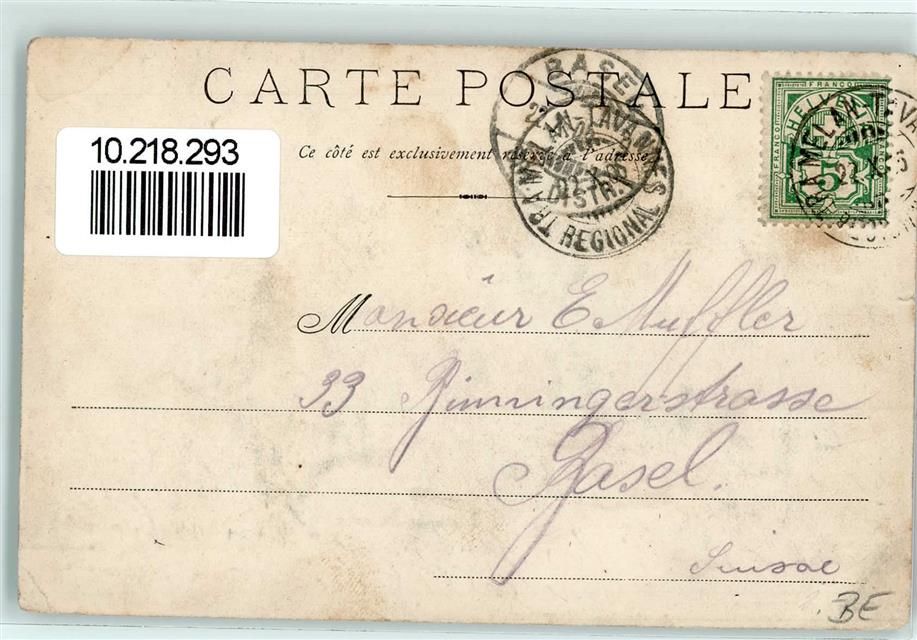 CARTE POSTALE
10.218.293
Ce côté est exclusivement réservé à l'adresse.
BASEL
TRAMELAN-TAVANNES
REGIONAL
FRANCO
HELVETIA
5
TRAMELAN-TAV
22 X
Monsieur E Muffler
33 Binningerstrasse
Basel.
Suisse
BE